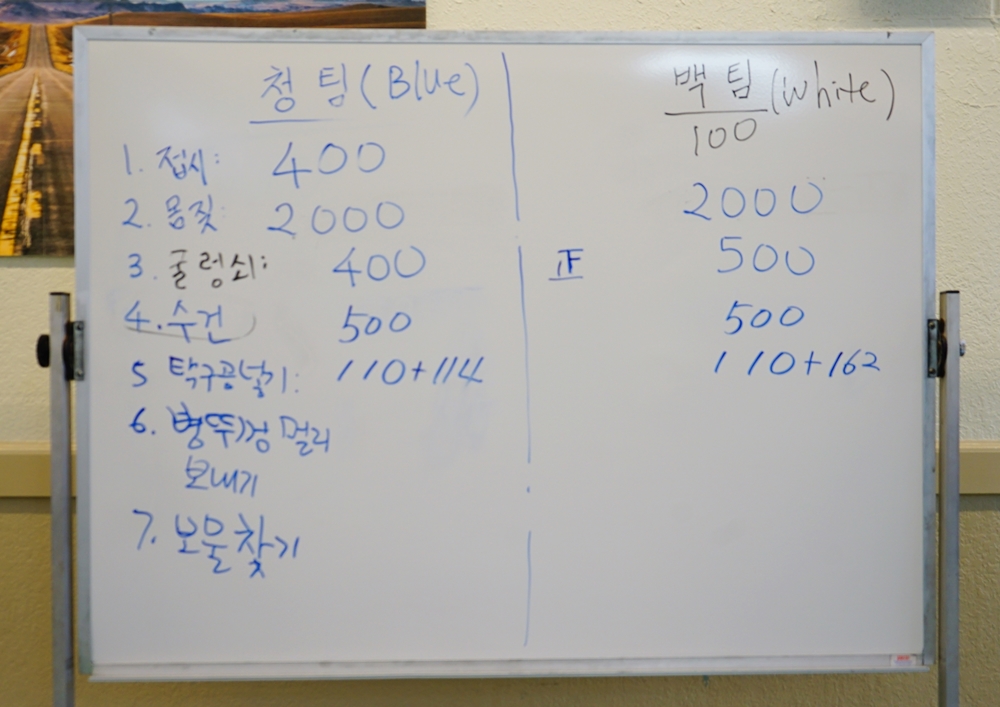 청 팀 (Blue)
백 팀 (White)
100
1. 접시: 400
2. 몸짓: 2000
2000
3. 굴렁쇠: 400
正 500
4. 수건 500
500
5 탁구공넣기: 110+114
110+162
6. 병뚜껑 멀리
보내기
7. 보물찾기